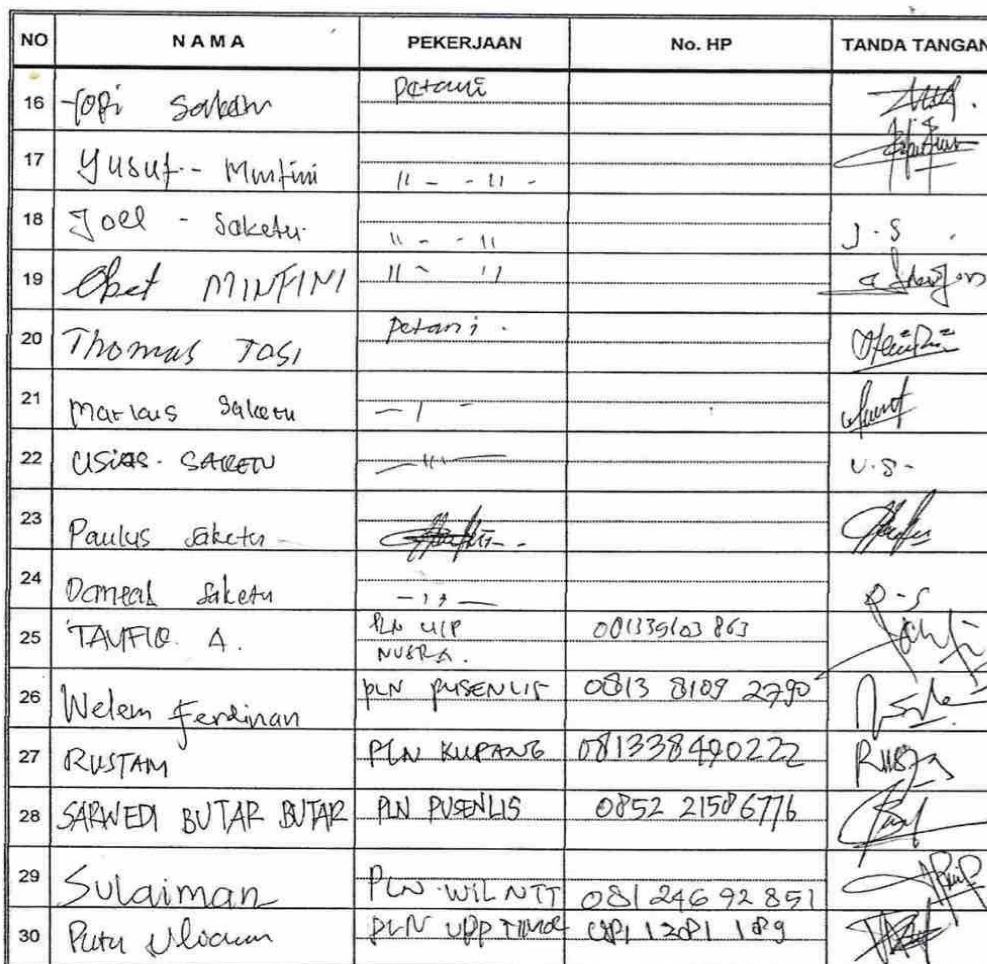 NO NAMA PEKERJAAN No. HP TANDA TANGAN
16 Yopi Saketu Petani
17 Yusuf - Minfini 11 - - 11 -
18 Joel - Saketu 11 - - 11 J.S
19 Obet MINFINI 11 - 11
20 Thomas TOSI Petani.
21 Markus Saketu
22 USIAS. SAKETU - 11 - U.S-
23 Paulus Saketu -
24 Saketu - 11 - D-S
25 TAUFIQ. A. PLN UIP
NUSRA.
26 Welem Ferdinan PLN PUSENLIS 0813 8109 2790
27 RUSTAM PLN KUPANG 081338490222
28 SARWEDI BUTAR BUTAR PLN PUSENLIS 0852 21586776
29 Sulaiman PLN. WIL NTT 081 246 92 851
30 Putu PLN UPP TIMOR